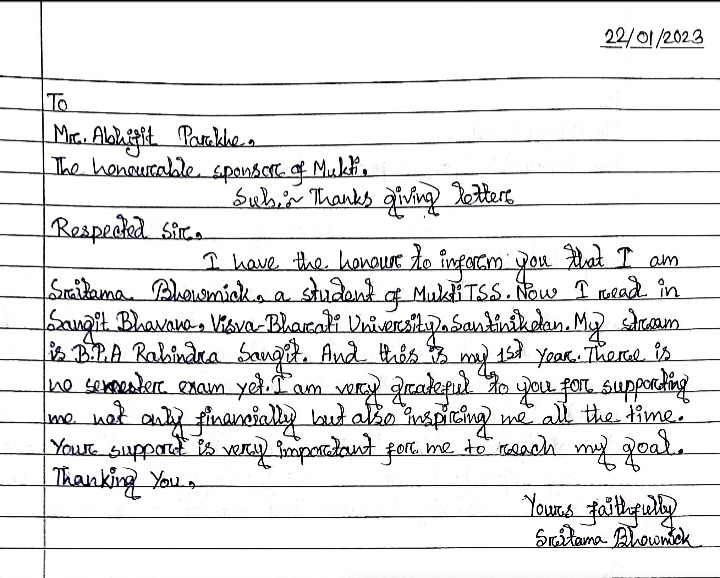 22/01/2023
To
Mr. Abhijit Parakhe,
The honourable sponsor of Mukti.
Sub:- Thanks giving letter
Respected Sir,
I have the honour to inform you that I am
Sritama Bhowmick, a student of Mukti TSS. Now I read in
Sangit Bhavana, Visva-Bharati University, Santiniketan. My stream
is B.P.A Rabindra Sangit. And this is my 1st year. There is
no semester exam yet. I am very grateful to you for supporting
me not only financially but also inspiring me all the time.
Your support is very important for me to reach my goal.
Thanking You,
Yours faithfully
Sritama Bhowmick